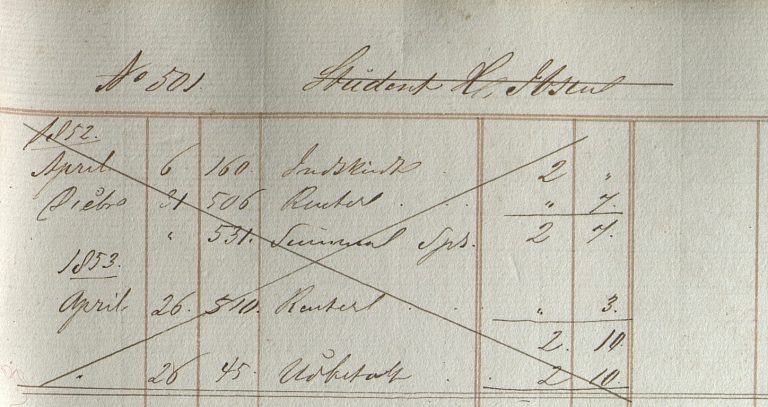 No 501. Student H. Ibsen
1852.
April 6 160 Indskudt 2 "
31 506 Renter " 7.
" 531. Summa Spd. 2 7.
1853.
April 26. 510. Renter " 3.
2. 10
" 26 45. Udbetalt 2 10